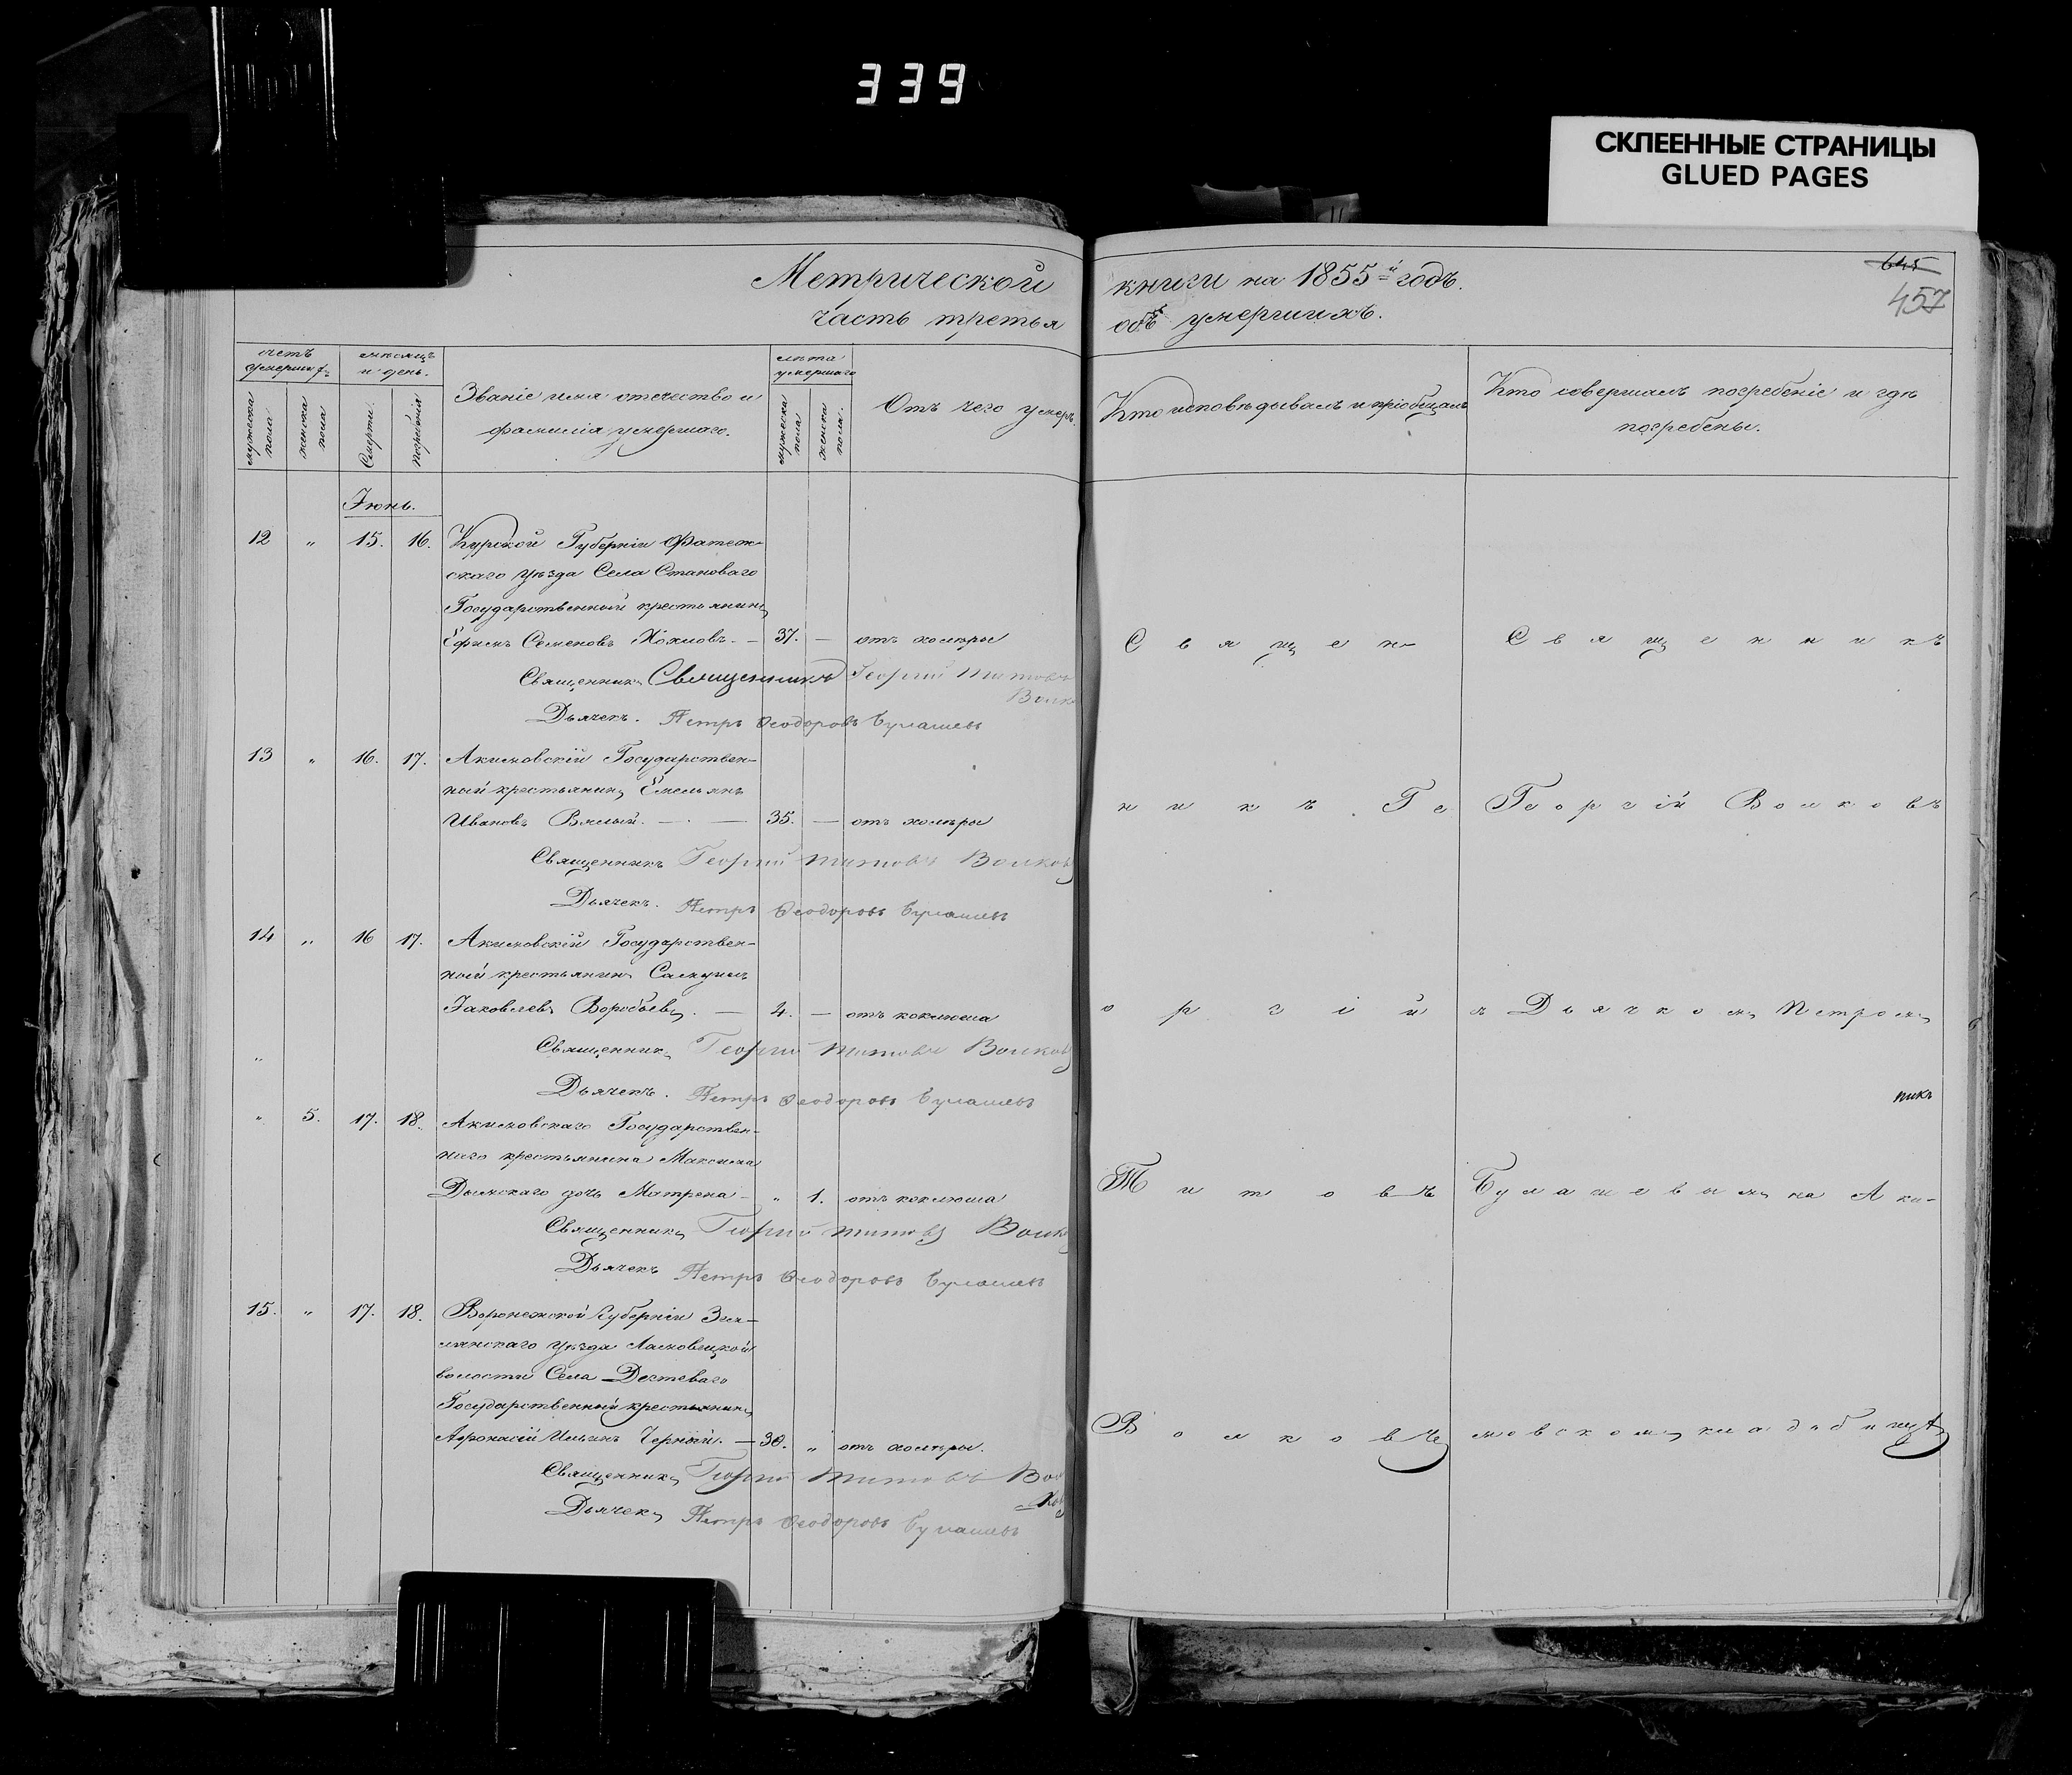 339
СКЛЕЕННЫЕ СТРАНИЦЫ
GLUED PAGES
645
457
Метрической книги на 1855й годъ.
часть третья объ умершихъ.
счетъ умершихъ
мужеска пола
женска пола
мѣсяцъ и день.
Смерти.
погребенія
Званіе имя отечество и
фамилія умершаго.
лѣта умершаго
мужеска пола
женска пола.
Отъ чего умеръ
Кто исповѣдывалъ и пріобщалъ
Кто совершалъ погребеніе и гдѣ
погребены.
Іюнь.
12 „ 15. 16. Курской Губерніи Фатеж-
скаго уѣзда Села Становаго
Государственный крестьянинъ
Ефимъ Семеновъ Хохловъ. — 37. — отъ холеры
Священникъ Священникъ Георгій Титовъ
Волк
Дьячекъ. Петръ Ѳеодоровъ Булашевъ
13 „ 16. 17. Акимовскій Государствен-
ный крестьянинъ Емельянъ
Ивановъ Вялый. — 35. — отъ холеры
Священникъ Георгій Титовъ Волковъ
Дьячекъ. Петръ Ѳеодоровъ Булашевъ
14 „ 16 17. Акимовскій Государствен-
ный крестьянинъ Самуилъ
Яковлевъ Воробьевъ. — 4. — отъ коклюша
Священникъ Георгій Титовъ Волковъ
„
Дьячекъ. Петръ Ѳеодоровъ Булашевъ
„ 5. 17. 18. Акимовскаго Государствен-
наго крестьянина Максима
Дымскаго дочь Матрена — „ 1. отъ коклюша
Священникъ Георгій Титовъ Волк
Дьячекъ Петръ Ѳеодоровъ Булашевъ
15. „ 17. 18. Воронежской Губерніи Зем-
лянскаго уѣзда
волости Села Дегтеваго
Государственный крестьянинъ
Афонасій Ильинъ Черный. — 30. „ отъ холеры.
Священникъ Георгій Титовъ Вол
ковъ
Дьячекъ Петръ Ѳеодоровъ Булашевъ
Священ-
никъ Ге
оргій
Титовъ
Волковъ
Священникъ
Георгій Волковъ
съ Дьячкомъ Петромъ
никъ
Булашевымъ на Аки-
мовскомъ кладбищѣ